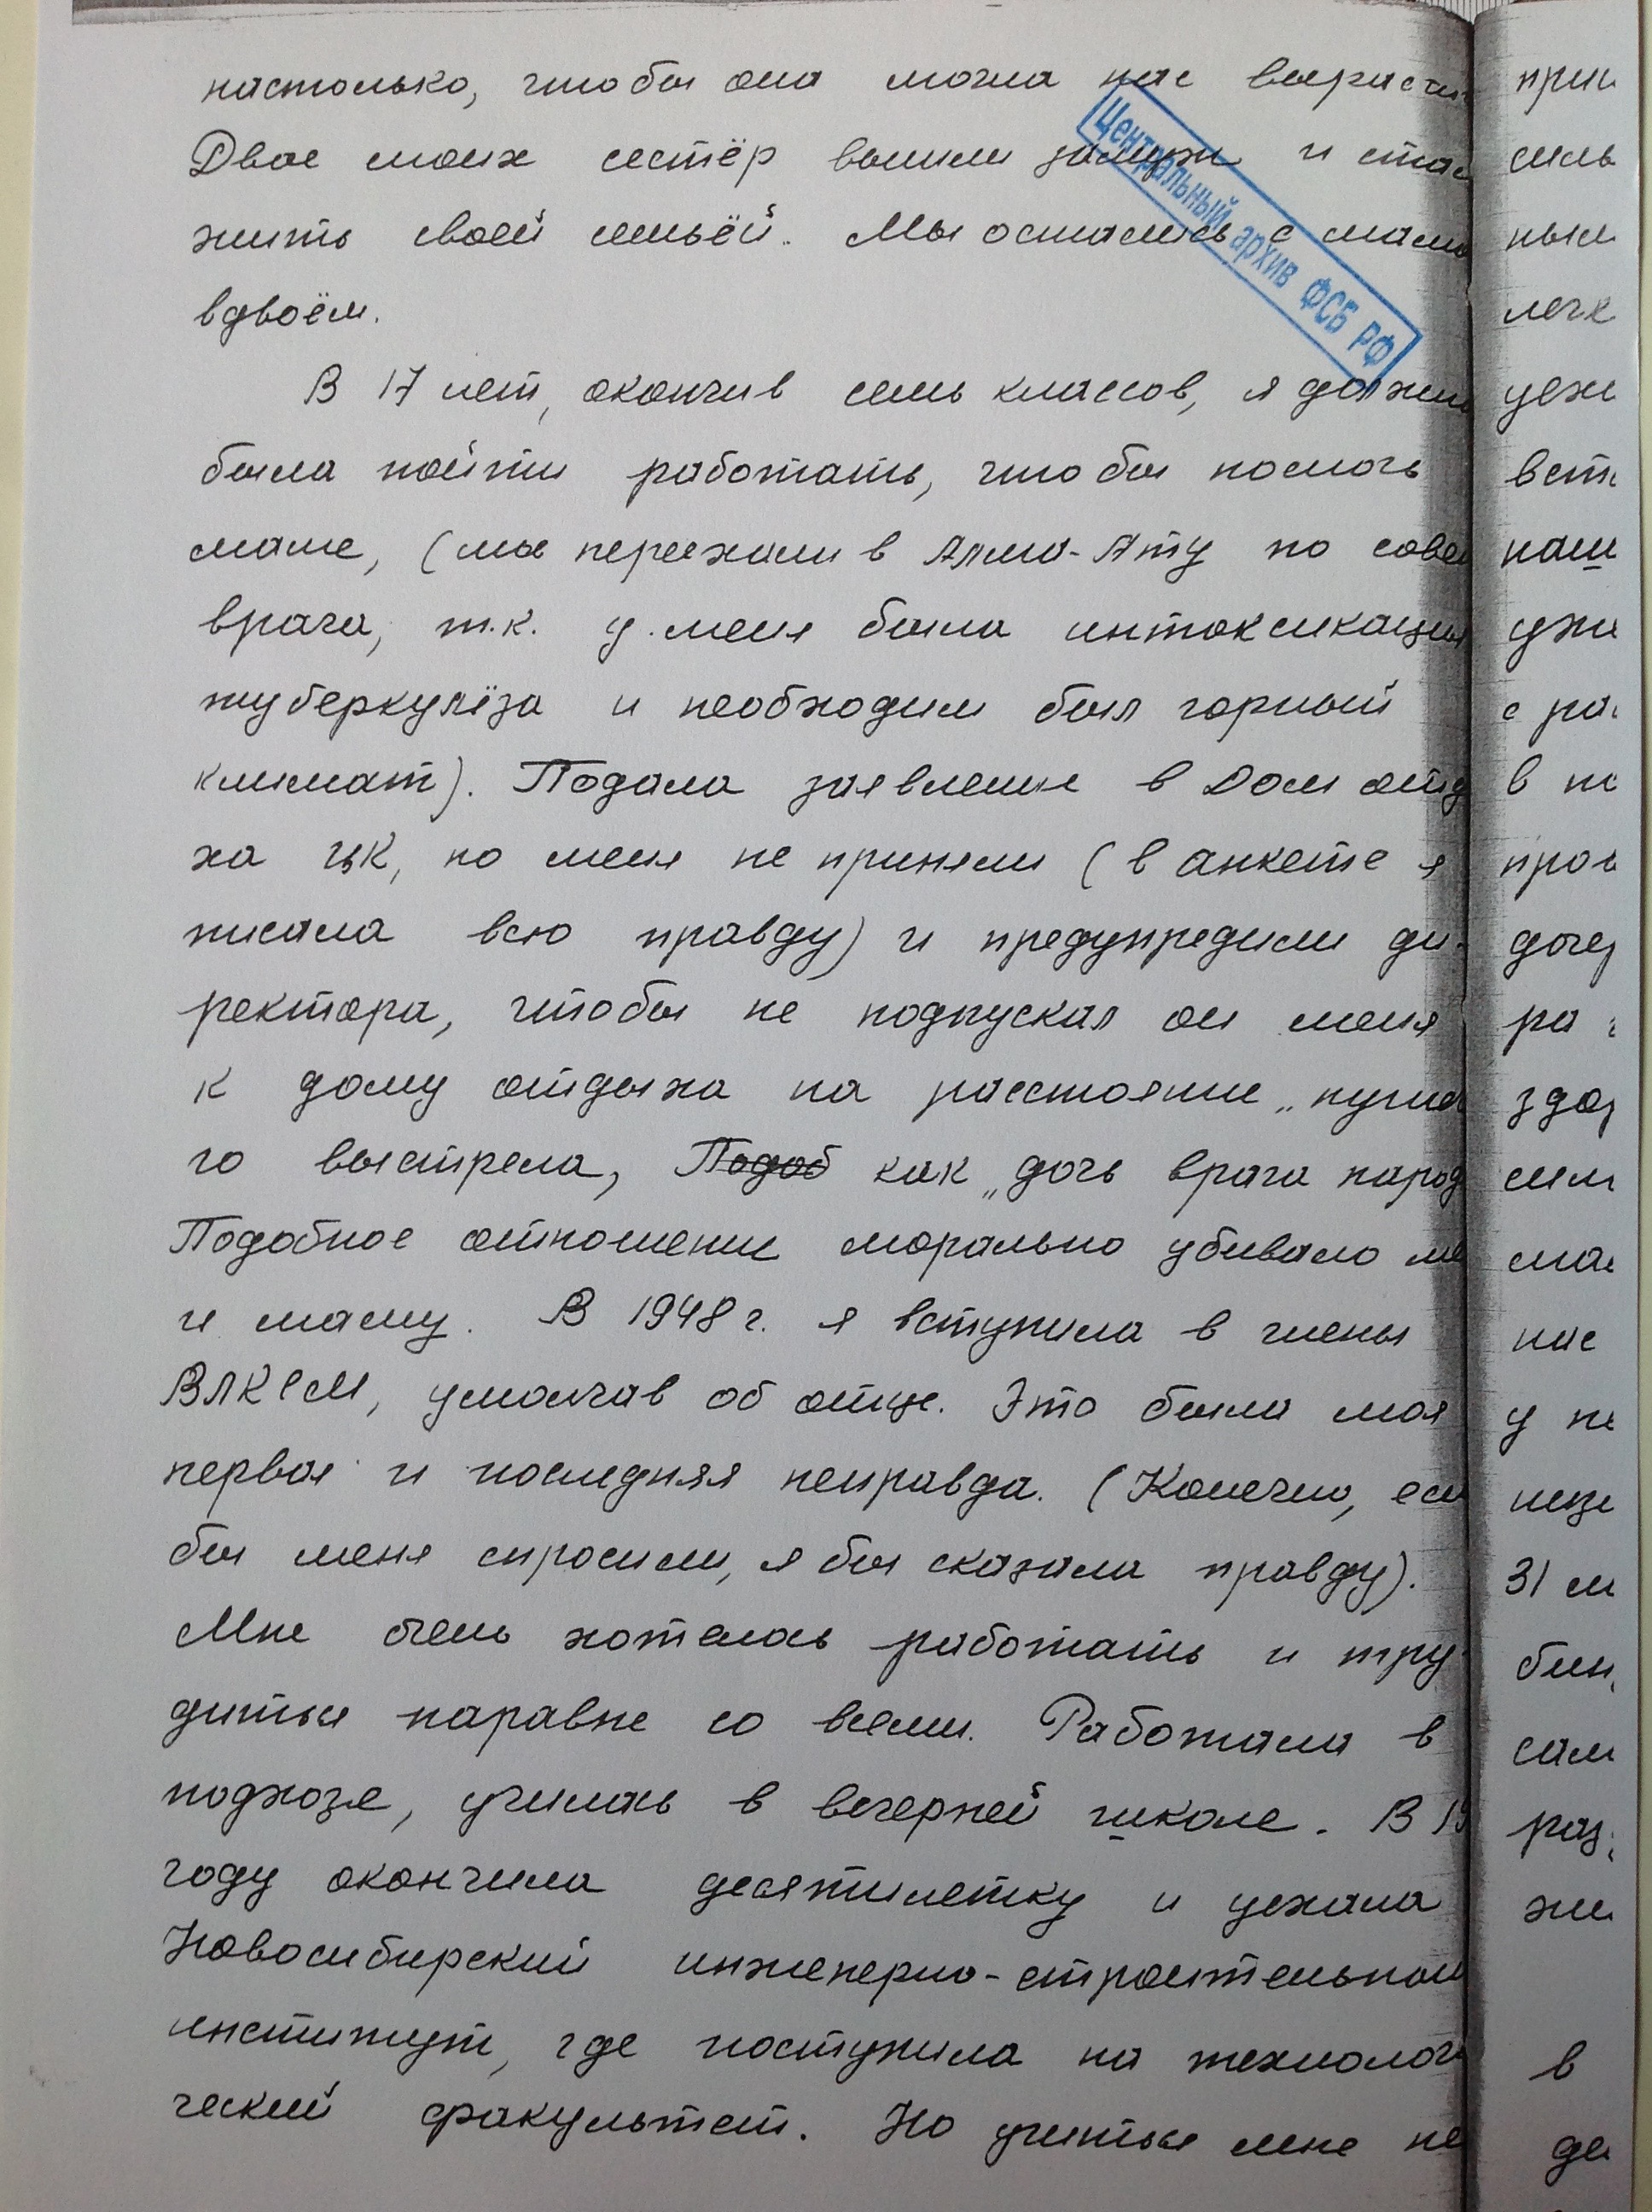 настолько, чтобы она могла нас вырасти
Двое моих сестёр вышли замуж и стал
жить своей семьёй. Мы остались с мамо
вдвоём.
Центральный архив ФСБ РФ
В 17 лет, окончив семь классов, я должн
была пойти работать, чтобы помочь
маме, (мы переехали в Алма-Ату по сове
врача, т.к. у меня была интоксикация
туберкулёза и необходим был горный
климат). Подала заявление в Дом отды
ха ЦК, но меня не приняли (в анкете я
писала всю правду) и предупредили ди-
ректора, чтобы не подпускал он меня
к дому отдыха на расстояние „пушеч
го выстрела, Подоб как „дочь врага народ
Подобное отношение морально убивало ме
и маму. В 1948 г. я вступила в члены
ВЛКСМ, умолчав об отце. Это была моя
первая и последняя неправда. (Конечно, есл
бы меня спросили, я бы сказала правду).
Мне очень хотелось работать и тру
диться наравне со всеми. Работала в
подхозе, училась в вечерней школе. В 19
году окончила десятилетку и уехала
Новосибирский инженерно-строительной
институт, где поступила на технологи
ческий факультет. Но учиться мне не
при
силь
ным
легк
уеж
вст
наш
уже
с ра
в по
пров
дочер
ра
здор
сил
мат
нас
у не
незе
31 м
бин
сам
раз
жи
в
де